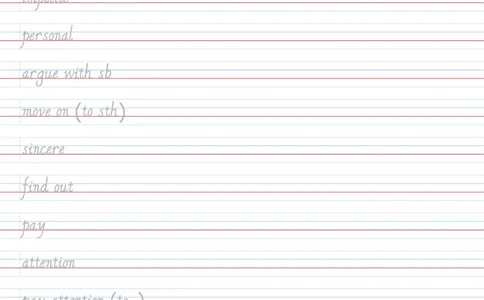 personal
argue with sb
move on (to sth)
sincere
find out
pay
attention
pay attention (to